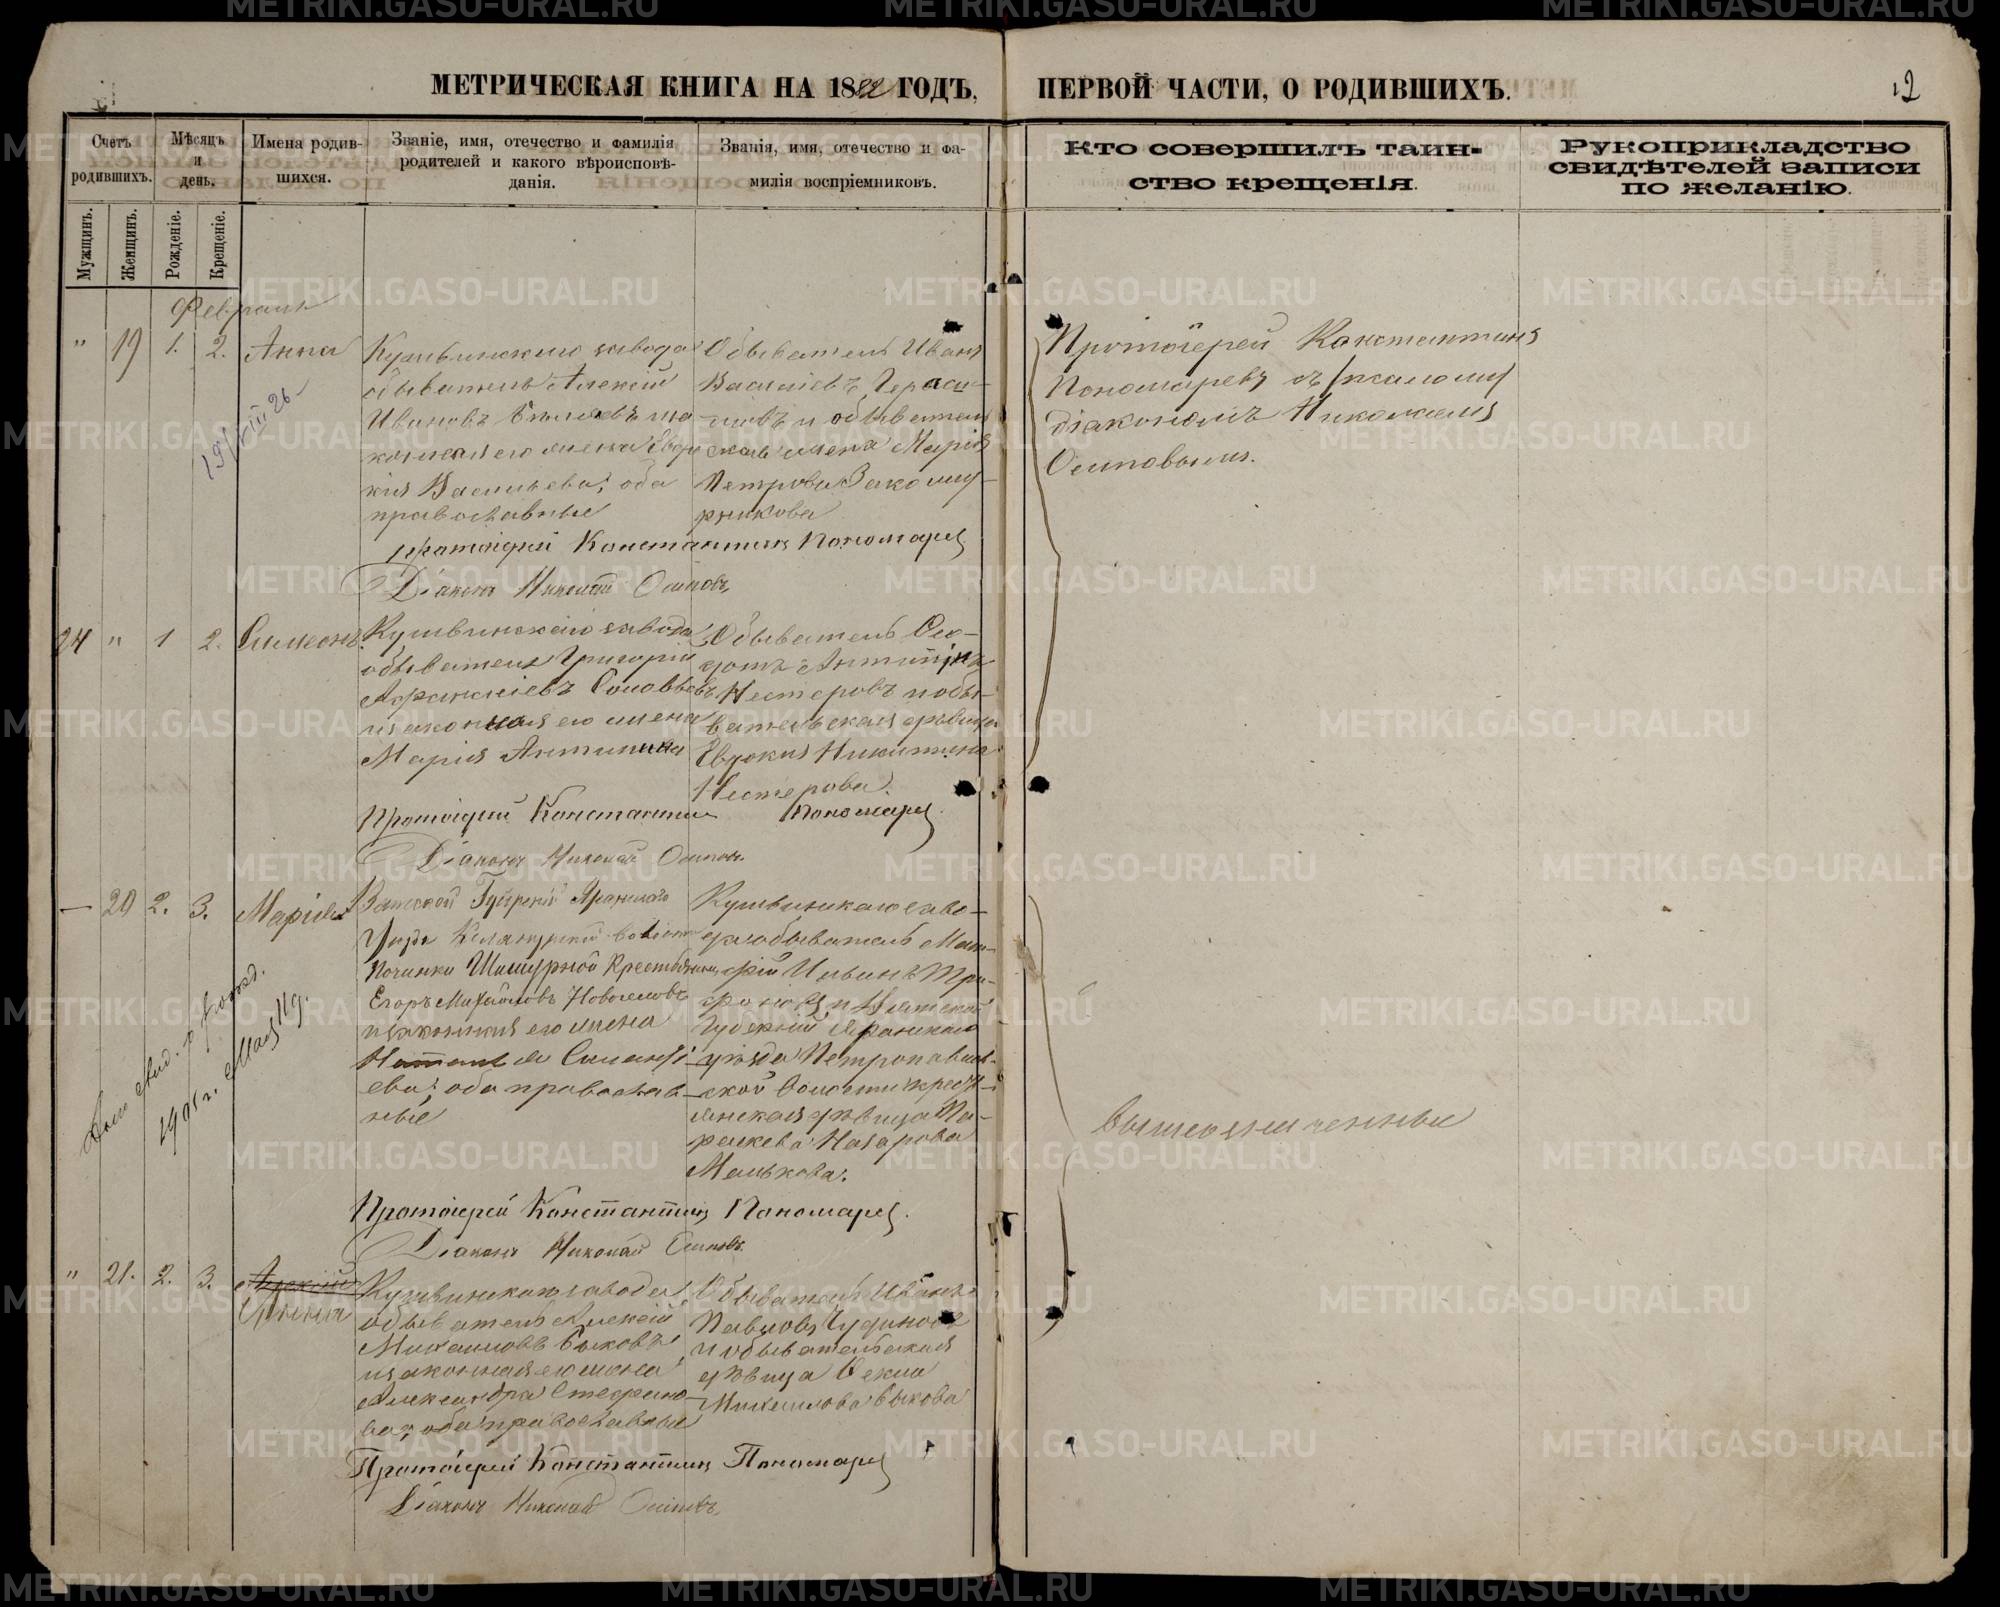 МЕТРИЧЕСКАЯ КНИГА НА 1882 ГОДЪ,
ПЕРВОЙ ЧАСТИ, О РОДИВШИХЪ.
Счетъ родившихъ.
Мѣсяцъ и день.
Имена родившихся.
Званіе, имя, отечество и фамилія
родителей и какого вѣроисповѣ-
данія.
Званія, имя, отечество и фа-
милія воспріемниковъ.
Кто совершилъ таин-
ство крещенія.
Рукоприкладство
свидѣтелей записи
по желанію.
Мужщинъ.
Женщинъ.
Рожденіе.
Крещеніе.
Февраль
" 19 1. 2. Анна
Кушвинскаго завода
обыватель Алексій
Ивановъ Бѣляевъ и за
конная его жена Евдо
кія Васильева; оба
православные
Обыватель Иванъ
Василіевъ Гераси-
мовъ и обыватель
ская жена Марія
Петрова Закому-
рникова
Протоіерей Константинъ
Пономаревъ съ
діакономъ Николаемъ
Осиповымъ.
Протоіерей Константинъ Пономаревъ
Діаконъ Николай Осиповъ
24 " 1 2. Симеонъ
Кушвинскаго завода
обыватель Григорій
Афанасіевъ Соловьевъ
и законная его жена
Марія Антипина
Обыватель Ѳео-
дотъ Антипинъ
Нестеровъ и обы-
вательская дѣвица
Евдокія Никитина
Нестерова.
Протоіерей Константинъ Пономаревъ.
Діаконъ Николай Осиповъ.
— 20 2. 3. Марія
Вятской Губерніи Яранскаго
Уѣзда волости
Починка Крестьянинъ
Егоръ Михайловъ Новоселовъ
и законная его жена
ева; оба православ-
ные
Кушвинскаго заво-
да обыватель Мат-
фій Ильинъ Три-
фоновъ и Вятской
Губерніи Яранскаго
уѣзда Петропавлов-
ской Волости кресть-
янская дѣвица Па-
раскева Назарова
Малькова.
вышеозначенные
1905 г. Мая 11 д.
Протоіерей Константинъ Пономаревъ.
Діаконъ Николай Осиповъ.
" 21. 2. 3.
Кушвинскаго завода
обыватель Алексій
Михаиловъ Быковъ
и законная его жена
Александра Стефано-
ва; оба православные
Обыватель Иванъ
Павловъ Чудиновъ
и обывательская
дѣвица Ѳекла
Михаилова Быкова
Протоіерей Константинъ Пономаревъ
Діаконъ Николай Осиповъ.
METRIKI.GASO-URAL.RU